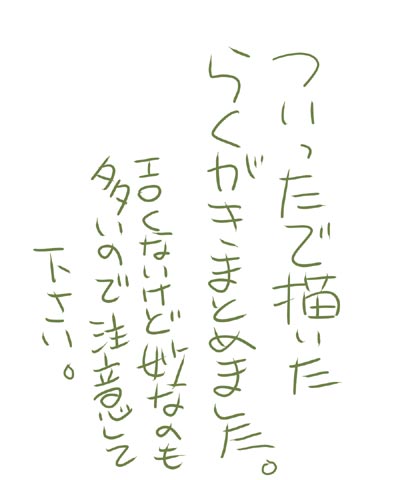 ついったで描いた
らくがきまとめました。
エロくないけど妙なのも
多いので注意して
下さい。